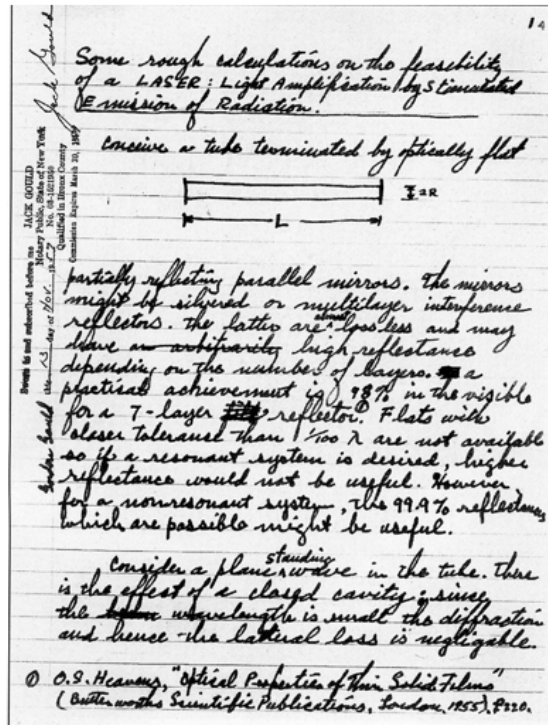 1
Some rough calculations on the feasibility
of a LASER: Light Amplification by Stimulated
Emission of Radiation.
conceive a tube terminated by optically flat
2R
L
partially reflecting parallel mirrors. The mirrors
might be silvered or multilayer interference
reflectors. The latter are almost lossless and may
have an arbitrarily high reflectance
depending on the number of layers. a
practical achievement is 98% in the visible
for a 7-layer reflector.① Flats with
closer tolerance than 1/100 λ are not available
so if a resonant system is desired, higher
reflectance would not be useful. However
for a nonresonant system, the 99.9% reflectances
which are possible might be useful.
Consider a plane standing wave in the tube. There
is the effect of a closed cavity; since
the wavelength is small the diffraction
and hence the lateral loss is negligable.
① O.S. Heavens, "Optical Properties of Thin Solid Films"
(Butterworths Scientific Publications, London, 1955), P220.
Jack Gould
JACK GOULD
Notary Public, State of New York
Qualified in Bronx County
Commission Expires March 30, 1959
Sworn to and subscribed before me
this 13 day of Nov. 1957
Gordon Gould